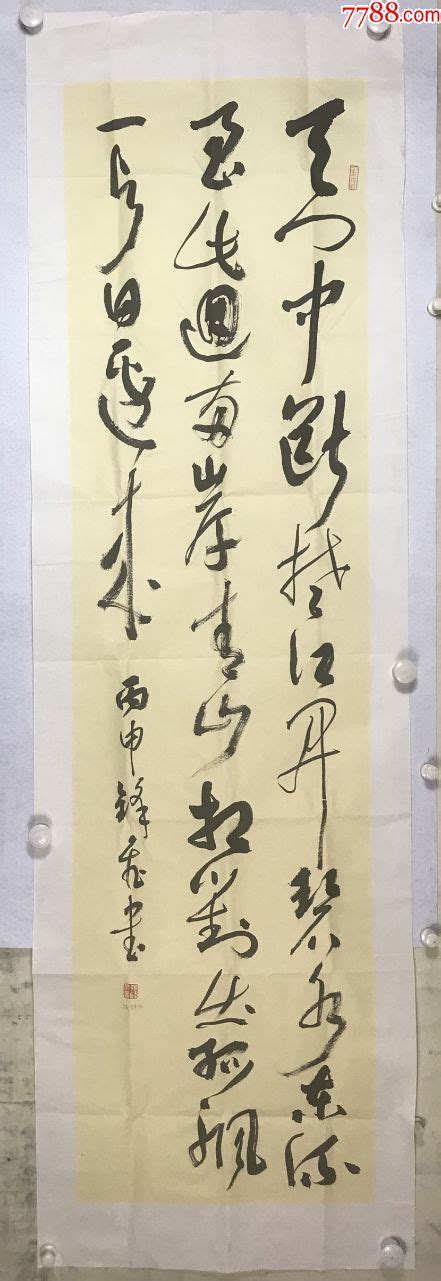 7788.com
天门中斷楚江开碧水东流
至此迴两岸青山相對出孤帆
一片日邊来
丙申鋒書